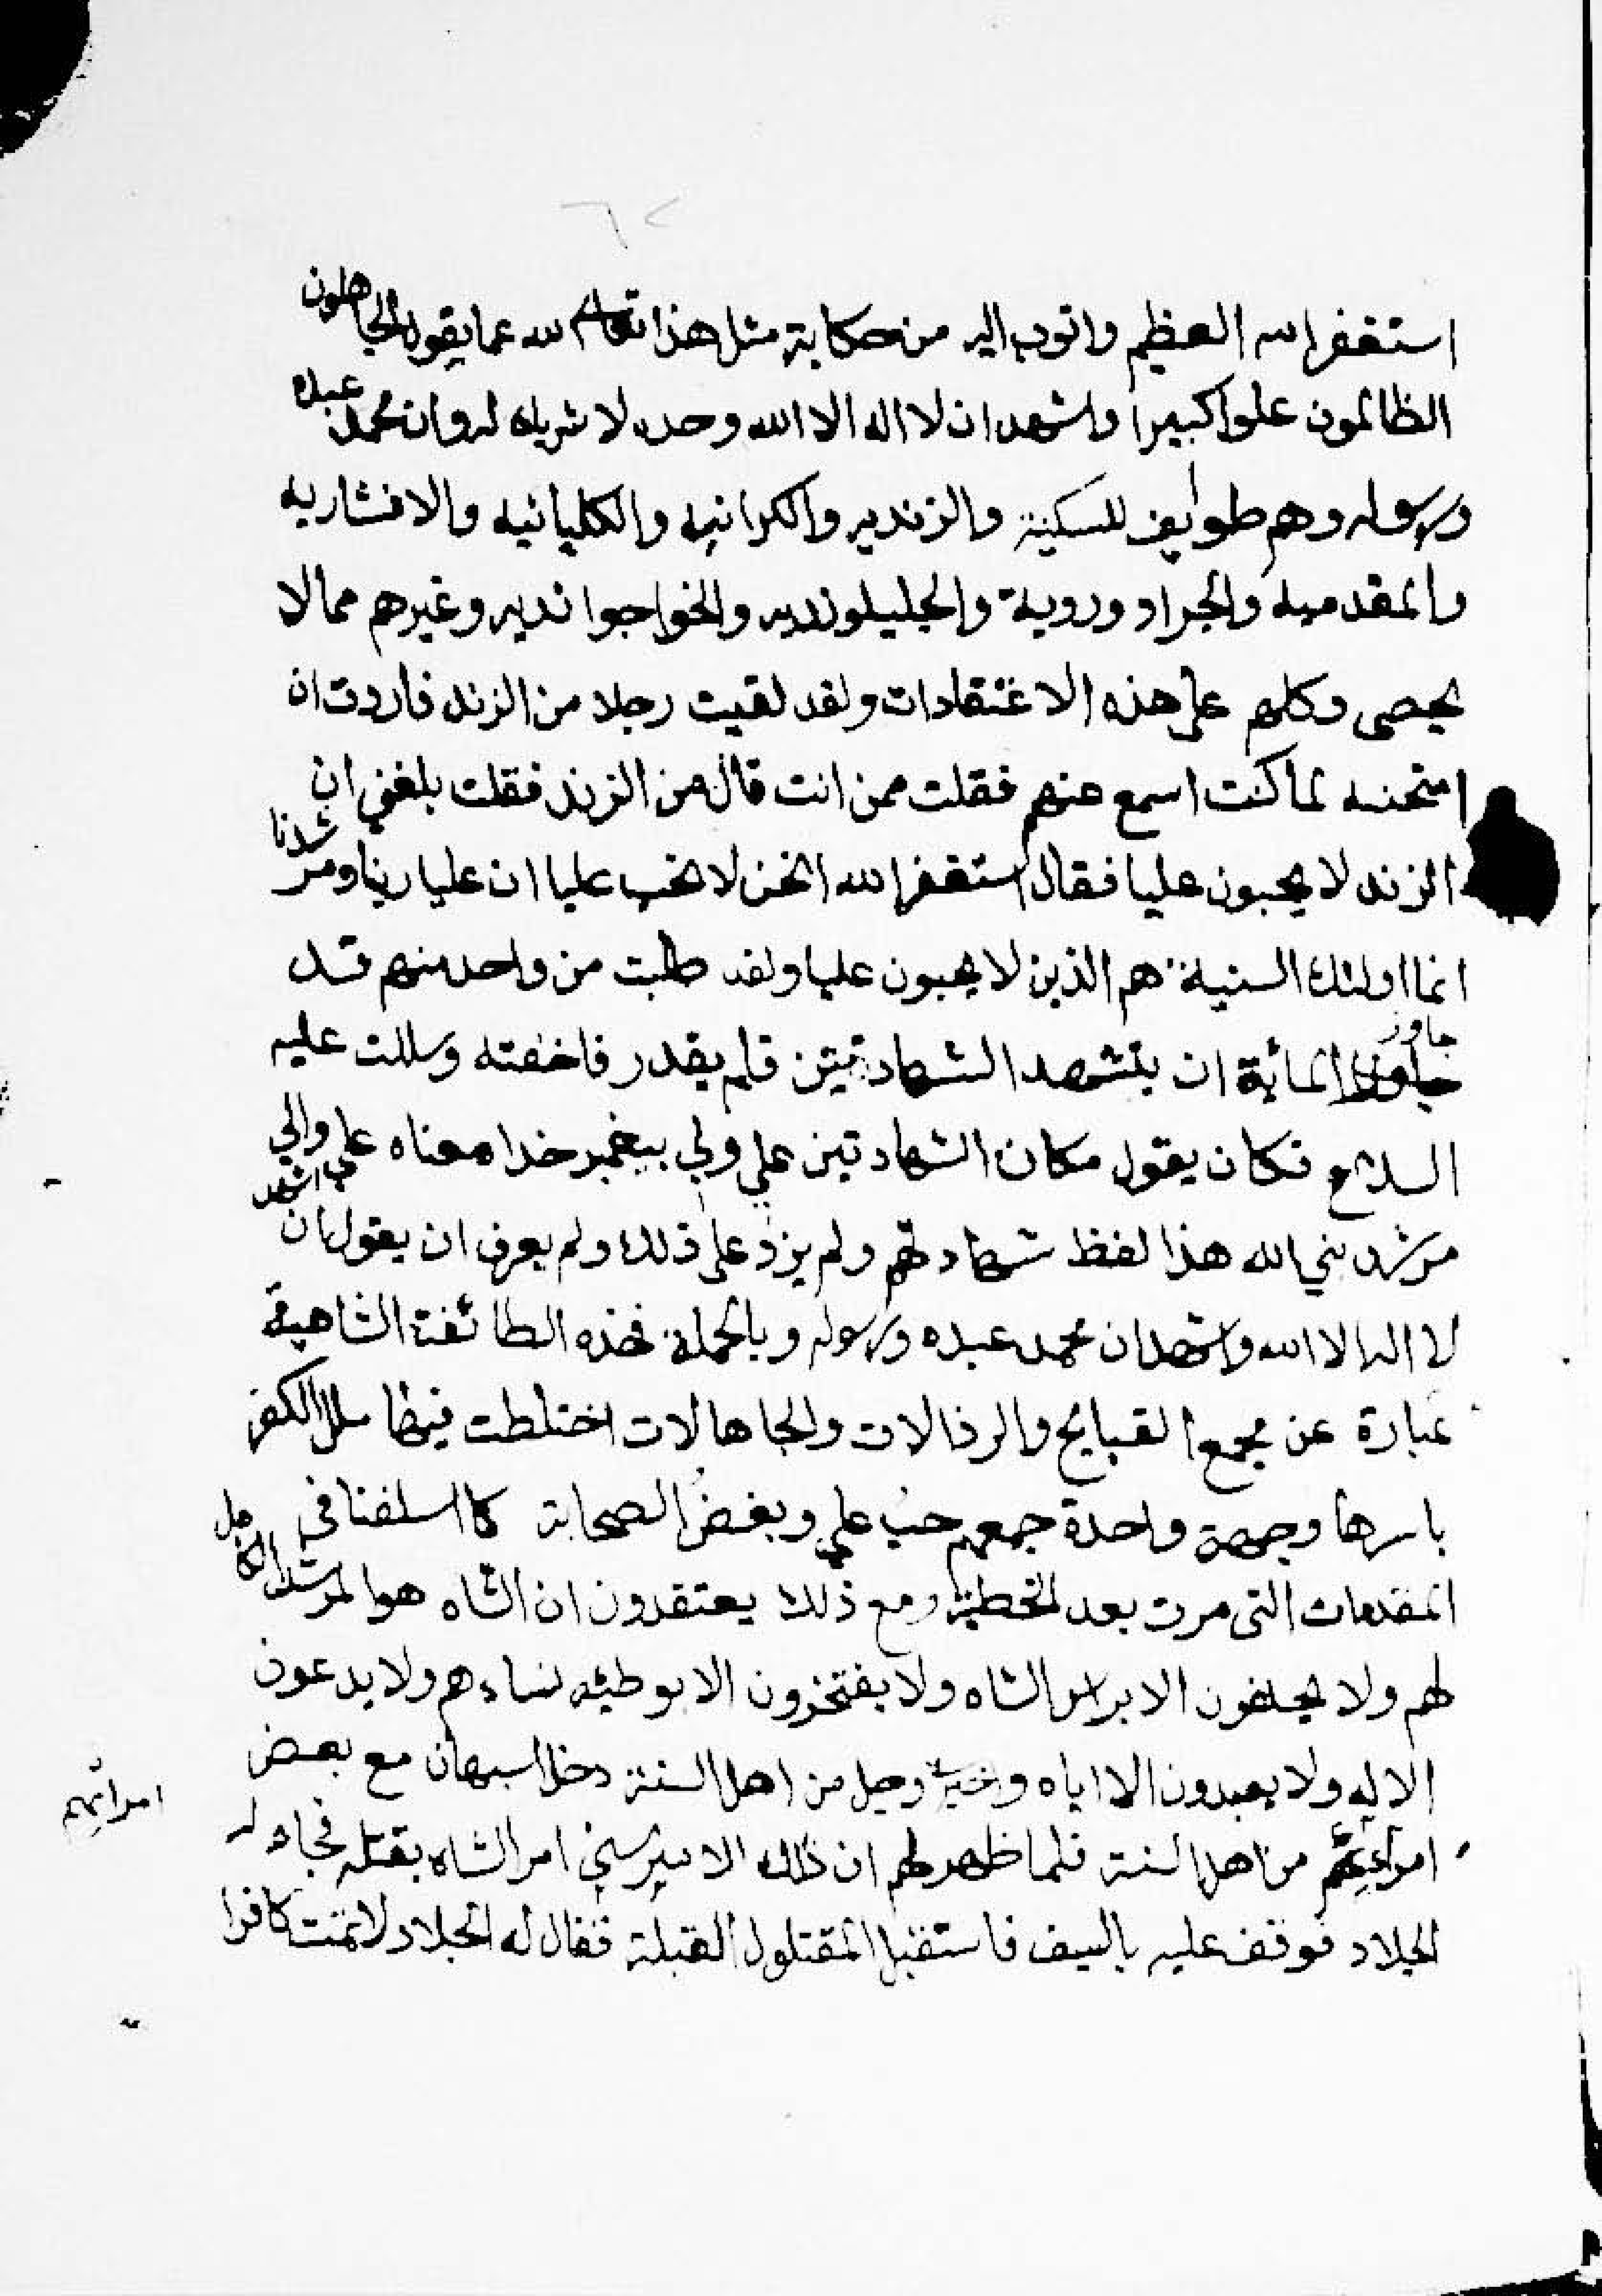 ٦٢
استغفر الله العظيم واتوب اليه من حكاية مثل هذا تعالى الله عما يقول الجاهلون
الظالمون علوا كبيرا واشهد ان لا اله الا الله وحده لا شريك له وان محمد عبده
ورسوله وهم طوايف للسكية والزنديه والكرانيه والكلپائيه والافشاريه
والمقدميه والجراد وروية والجليلونديه والخواجوانديه وغيرهم مما لا
يحصى وكلهم على هذه الاعتقادات ولقد لقيت رجلا من الزند فاردت ان
امتحنه لما كنت اسمع عنهم فقلت ممن انت قال من الزند فقلت بلغني ان
الزند لا يحبون عليا فقال استغفر الله انحن لا نحب عليا ان عليا ربنا ومرشدنا
انما اولئك السنية هم الذين لا يحبون عليا ولقد طلبت من واحد منهم قد
جاوز المائة ان يتشهد الشهادتين فلم يقدر فاخفته وسللت عليه
السلاح فكان يقول مكان الشهادتين علي ولي پيغمبر خدا معناه علي والي
مرشد نبي الله هذا لفظ شهادتهم ولم يزد على ذلك ولم يعرف ان يقول اشهد ان
لا اله الا الله واشهد ان محمد عبده ورسوله وبالجملة فهذه الطائفة الشاهية
عبارة عن مجمع القبايح والرذالات والجاهالات اختلطت فيها ملل الكفر
باسرها وجهة واحدة جمعهم حب علي وبغض الصحابة كما اسلفنا في
المقدمات التي مرت بعد الخطبة ومع ذلك يعتقدون ان الشاه هو المرشد الكامل
لهم ولا يحلفون الا براس الشاه ولا يفتخرون الا بوطيه نساءهم ولا يدعون
الا ليه ولا يعبدون الا اياه وخيره رجل من اهل السنة دخل اسبهان مع بعض
امرائهم من اهل السنة فلما ظهر لهم ان ذلك الامير سني امر الشاه بقتله فجاء له
امرائهم
الجلاد فوقف عليه بالسيف فاستقبل المقتلول القبلة فقال له الجلاد لا تمت كافرا